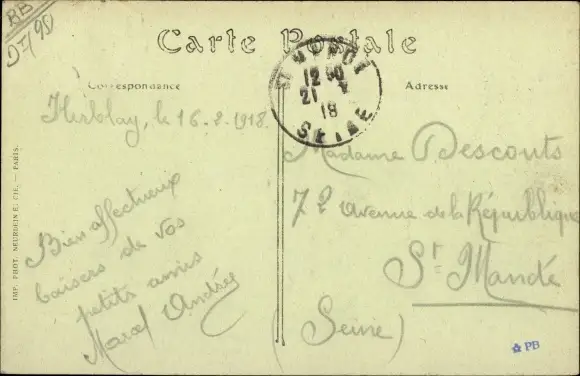 BB
Carte Postale
Correspondance
Adresse
ST MANDE
12 90
21
18
SEINE
Herblay, le 16-2-1918.
Bien affectueux
baisers de vos
petits amis
Marcel Andrée
Madame Descouts
72 avenue de la République
St Mandé
(Seine)
IMP. PHOT. NEURDEIN E. CIE. — PARIS.
PB